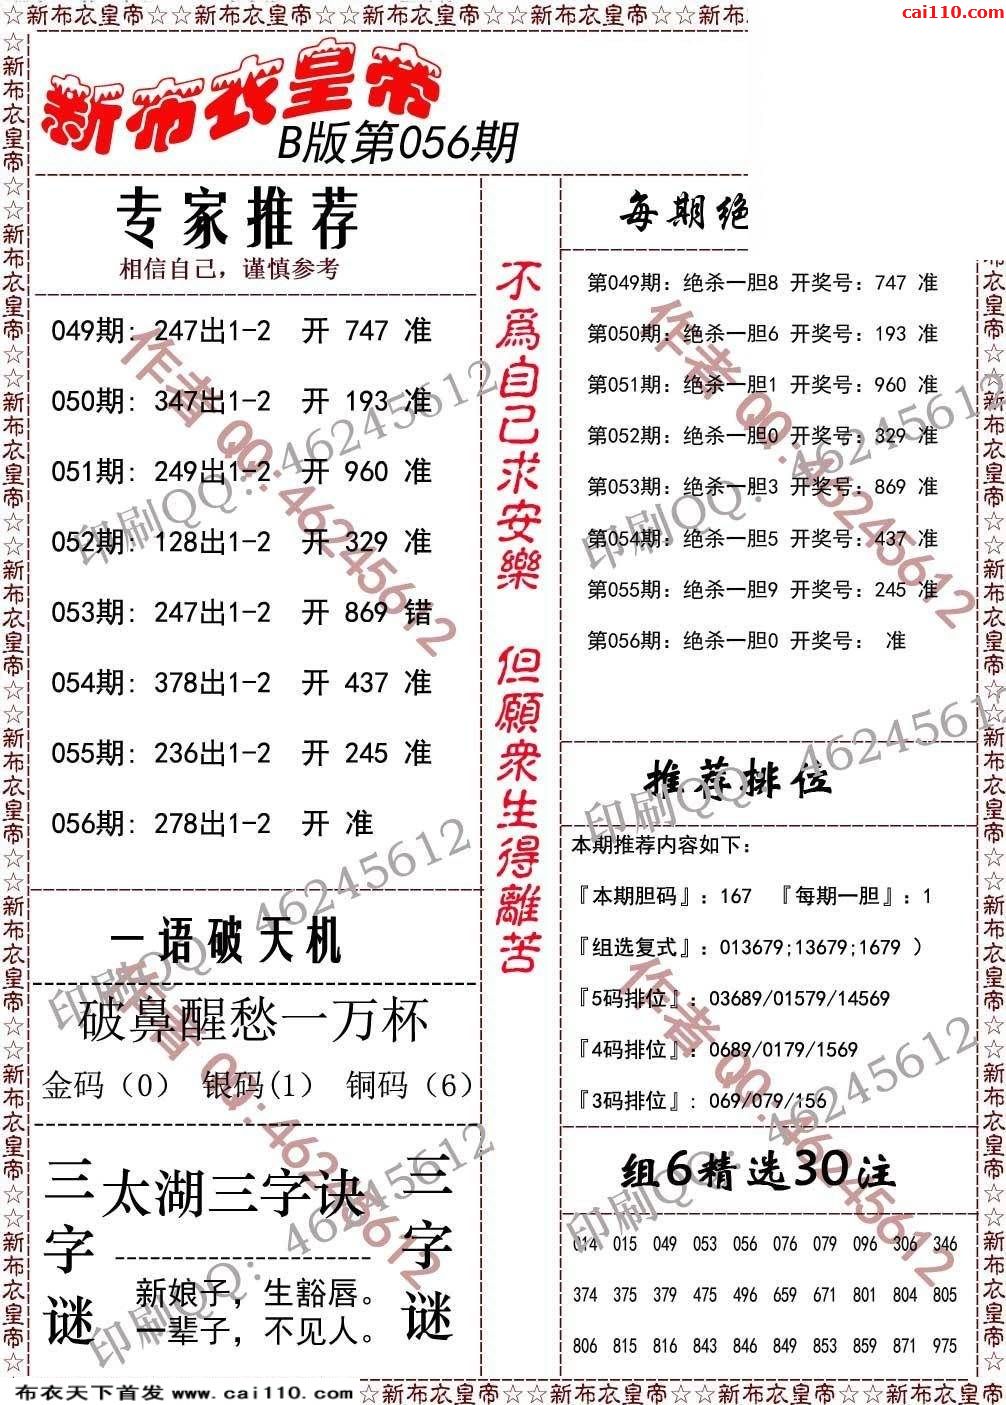 ☆新布衣皇帝☆☆新布衣皇帝☆☆新布衣皇帝☆☆新布衣皇帝☆☆新布
cai110.com
新布衣皇帝
B版第056期
专家推荐
相信自己，谨慎参考
049期: 247出1-2 开 747 准
050期: 347出1-2 开 193 准
051期: 249出1-2 开 960 准
052期: 128出1-2 开 329 准
053期: 247出1-2 开 869 错
054期: 378出1-2 开 437 准
055期: 236出1-2 开 245 准
056期: 278出1-2 开 准
一语破天机
破鼻醒愁一万杯
金码（0） 银码(1） 铜码（6）
三字谜
太湖三字诀
新娘子，生豁唇。
一辈子，不见人。
三字谜
不為自己求安樂 但願衆生得離苦
每期绝
第049期: 绝杀一胆8 开奖号: 747 准
第050期: 绝杀一胆6 开奖号: 193 准
第051期: 绝杀一胆1 开奖号: 960 准
第052期: 绝杀一胆0 开奖号: 329 准
第053期: 绝杀一胆3 开奖号: 869 准
第054期: 绝杀一胆5 开奖号: 437 准
第055期: 绝杀一胆9 开奖号: 245 准
第056期: 绝杀一胆0 开奖号: 准
推荐排位
本期推荐内容如下:
『本期胆码』: 167 『每期一胆』: 1
『组选复式』: 013679;13679;1679 ）
『5码排位』: 03689/01579/14569
『4码排位』: 0689/0179/1569
『3码排位』: 069/079/156
组6精选30注
014 015 049 053 056 076 079 096 306 346
374 375 379 475 496 659 671 801 804 805
806 815 816 843 846 849 853 859 871 975
作者 QQ:46245612
印刷QQ: 46245612
作者 QQ:46245612
印刷QQ: 46245612
印刷QQ: 46245612
印刷QQ: 46245612
作者 QQ:46245612
作者 QQ:46245612
印刷QQ: 46245612
印刷QQ: 46245612
☆新布衣皇帝☆☆新布衣皇帝☆☆新布衣皇帝☆☆新布衣皇帝☆☆新布衣皇帝☆☆新布衣皇帝☆☆新布衣皇帝☆☆新布衣皇帝☆
布衣皇帝☆☆新布衣皇帝☆☆新布衣皇帝☆☆新布衣皇帝☆☆新布衣皇帝☆☆新布衣皇帝☆☆新布衣皇帝☆
布衣天下首发 www.cai110.com
☆新布衣皇帝☆☆新布衣皇帝☆☆新布衣皇帝☆☆新布衣皇帝☆